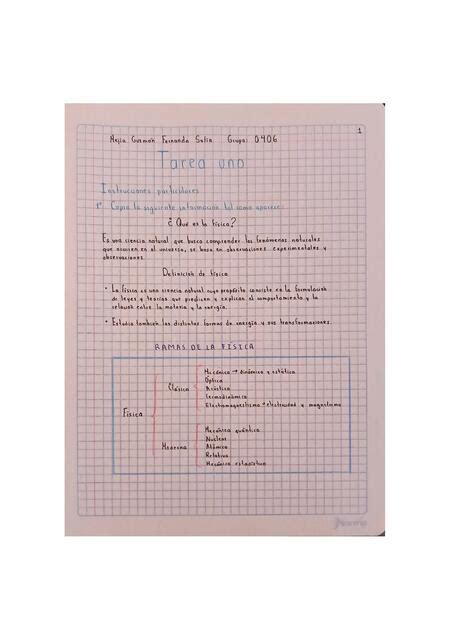 1
Mejia Guzmán Fernanda Sofia Grupo: 0406
Tarea uno
Instrucciones particulares
1º Copia la siguiente información tal como aparece:
¿Qué es la física?
Es una ciencia natural que busca comprender los fenómenos naturales
que ocurren en el universo, se basa en observaciones experimentales y
observaciones
Definición de física
• La física es una ciencia natural cuyo propósito consiste en la formulación
de leyes y teorías que predicen y explican el comportamiento y la
relación entre la materia y la energía.
• Estudia también las distintas formas de energía y sus transformaciones.
RAMAS DE LA FISICA
Física
Clásica
Mecánica → dinámica y estática
Óptica
Acústica
Termodinámica
Electromagnetismo → electricidad y magnetismo
Moderna
Mecánica quántica
Nuclear
Atómica
Relativa
Mecánica estadística